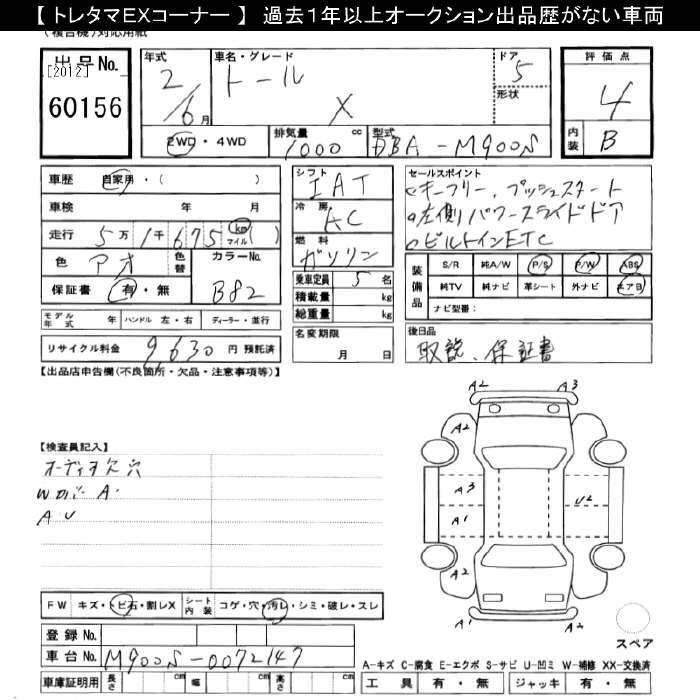 【 トレタマEXコーナー 】 過去1年以上オークション出品歴がない車両
(複合機)対応用紙
出品No.
[2012]
60156
年式
2/6月
車名・グレード
トール
X
ドア
5
形状
2WD・4WD
排気量
1000 cc
型式
DBA-M900S
評価点
4
内装
B
車歴 自家用・( )
車検 年 月
走行 5万1千675 km マイル ( )
色 アオ 色替 カラーNo. B82
保証書 有・無
モデル年式 年 ハンドル 左・右 ディーラー・並行
リサイクル料金 9,630 円 預託済
シフト
IAT
冷房
AC
燃料
ガソリン
乗車定員 5 名
積載量 kg
総重量 kg
名変期限
月 日
セールスポイント
キーフリー、プッシュスタート
左側パワースライドドア
ビルトインETC
装備品
S/R 純A/W P/S P/W ABS
純TV 純ナビ 革シート 外ナビ エアB
ナビ型番:
後日品
取説、保証書
【出品店申告欄(不良箇所・欠品・注意事項等)】
【検査員記入】
オーディオ欠 穴
A U
A2 A3
A2
A3
A1
U2
A2
A1 A2
スペア
FW キズ・トビ石・割レX シート内装 コゲ・穴・汚レ・シミ・破レ・スレ
登録No.
車台No. M900S-0072147
車庫証明用 長さ cm 幅 cm 高さ cm
A-キズ C-腐食 E-エクボ S-サビ U-凹ミ W-補修 XX-交換済
工具 有・無 ジャッキ 有・無